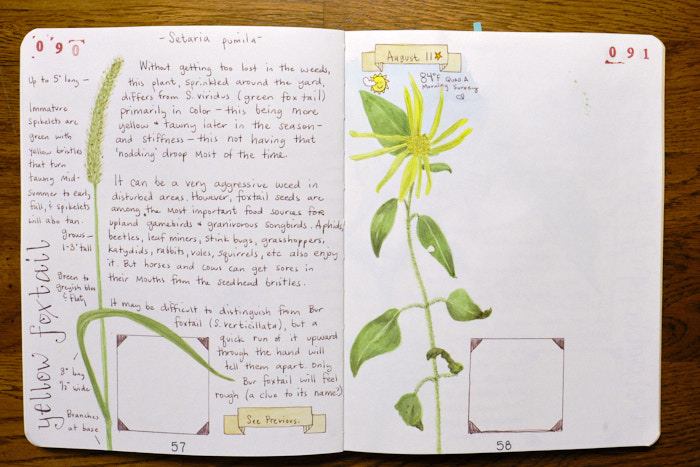 090
-Setaria pumila-
Up to 5" long -
Immature
Spikelets are
green with
yellow bristles
that turn
tawny mid-
Summer to early
fall, & spikelets
will also tan.
grows -
1-3' tall
Green to
greyish blue
& flat
8" long
1/2" wide
Branches
at base
yellow foxtail
Without getting too lost in the weeds,
this plant, sprinkled around the yard,
differs from S. viridus (green fox tail)
primarily in color - this being more
yellow & tawny later in the season -
and stiffness - this not having that
'nodding' droop most of the time.
It can be a very aggressive weed in
disturbed areas. However, foxtail seeds are
among the most important food sources for
upland gamebirds & granivorous songbirds. Aphids,
beetles, leaf miners, stink bugs, grasshoppers,
katydids, rabbits, voles, squirrels, etc also enjoy
it. But horses and cows can get sores in
their mouths from the seedhead bristles.
It may be difficult to distinguish from Bur
foxtail (S. verticillata), but a
quick run of it upward
through the hand will
tell them apart. Only
Bur foxtail will feel
rough (a clue to its name?)
See Previous.
57
August 11
84°F Quad A
Morning Survey
091
58